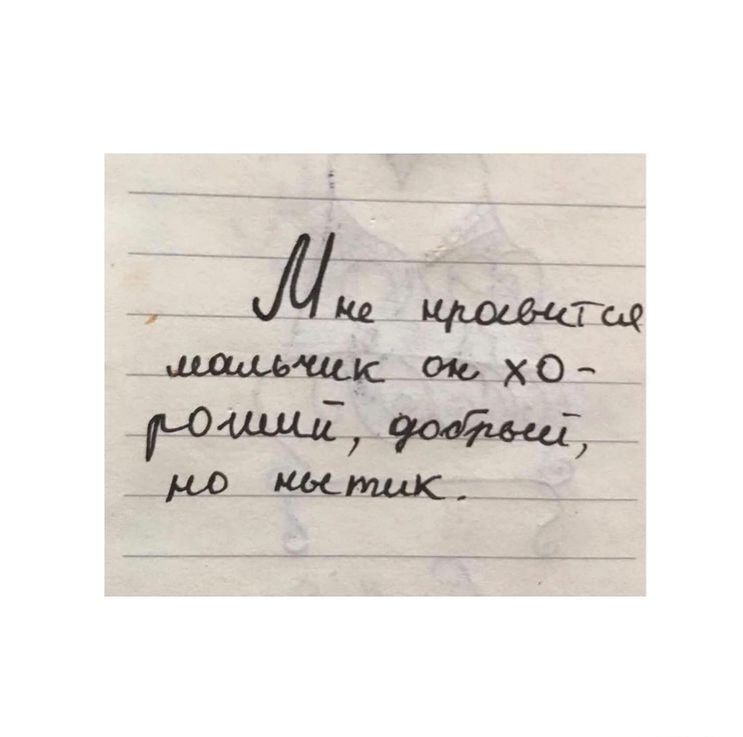 Мне нравится
мальчик он хо-
роший, добрый,
но нытик.